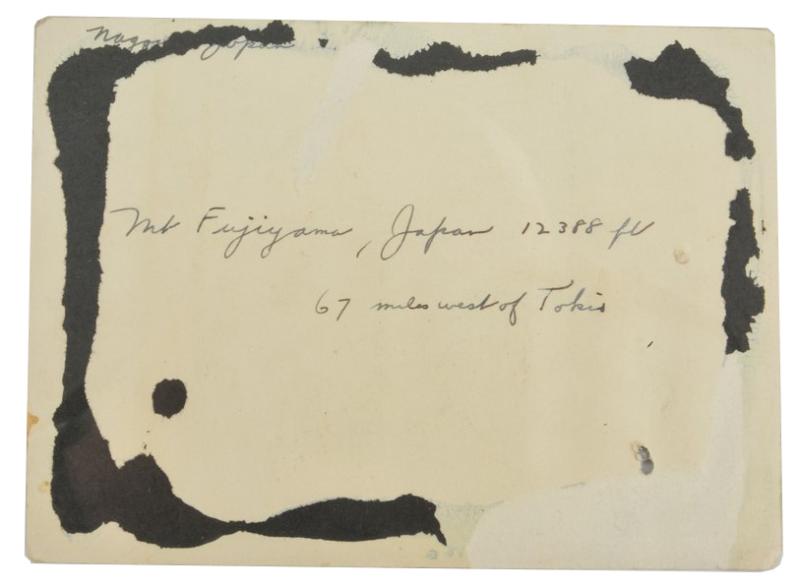 Japan
Mt Fujiyama, Japan 12388 ft
67 miles west of Tokio